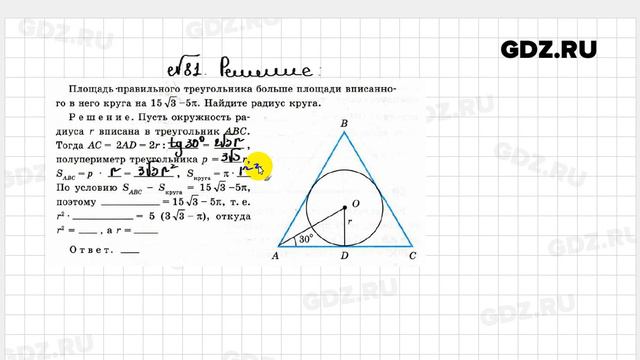 GDZ.RU
№81. Решение:
Площадь правильного треугольника больше площади вписанно-
го в него круга на 15√3 –5π. Найдите радиус круга.
Решение. Пусть окружность ра-
диуса r вписана в треугольник ABC.
Тогда AC = 2AD = 2r : tg 30° = 2√3r,
полупериметр треугольника p = 3√3 r,
S ABC = p · r = 3√3r², S круга = π · r²
По условию S ABC – S круга = 15√3 –5π,
поэтому ___ = 15√3 – 5π, т. е.
r² · ___ = 5 (3√3 – π), откуда
r² = ___ , а r = ___
Ответ. ___
B
O
r
30°
A D C